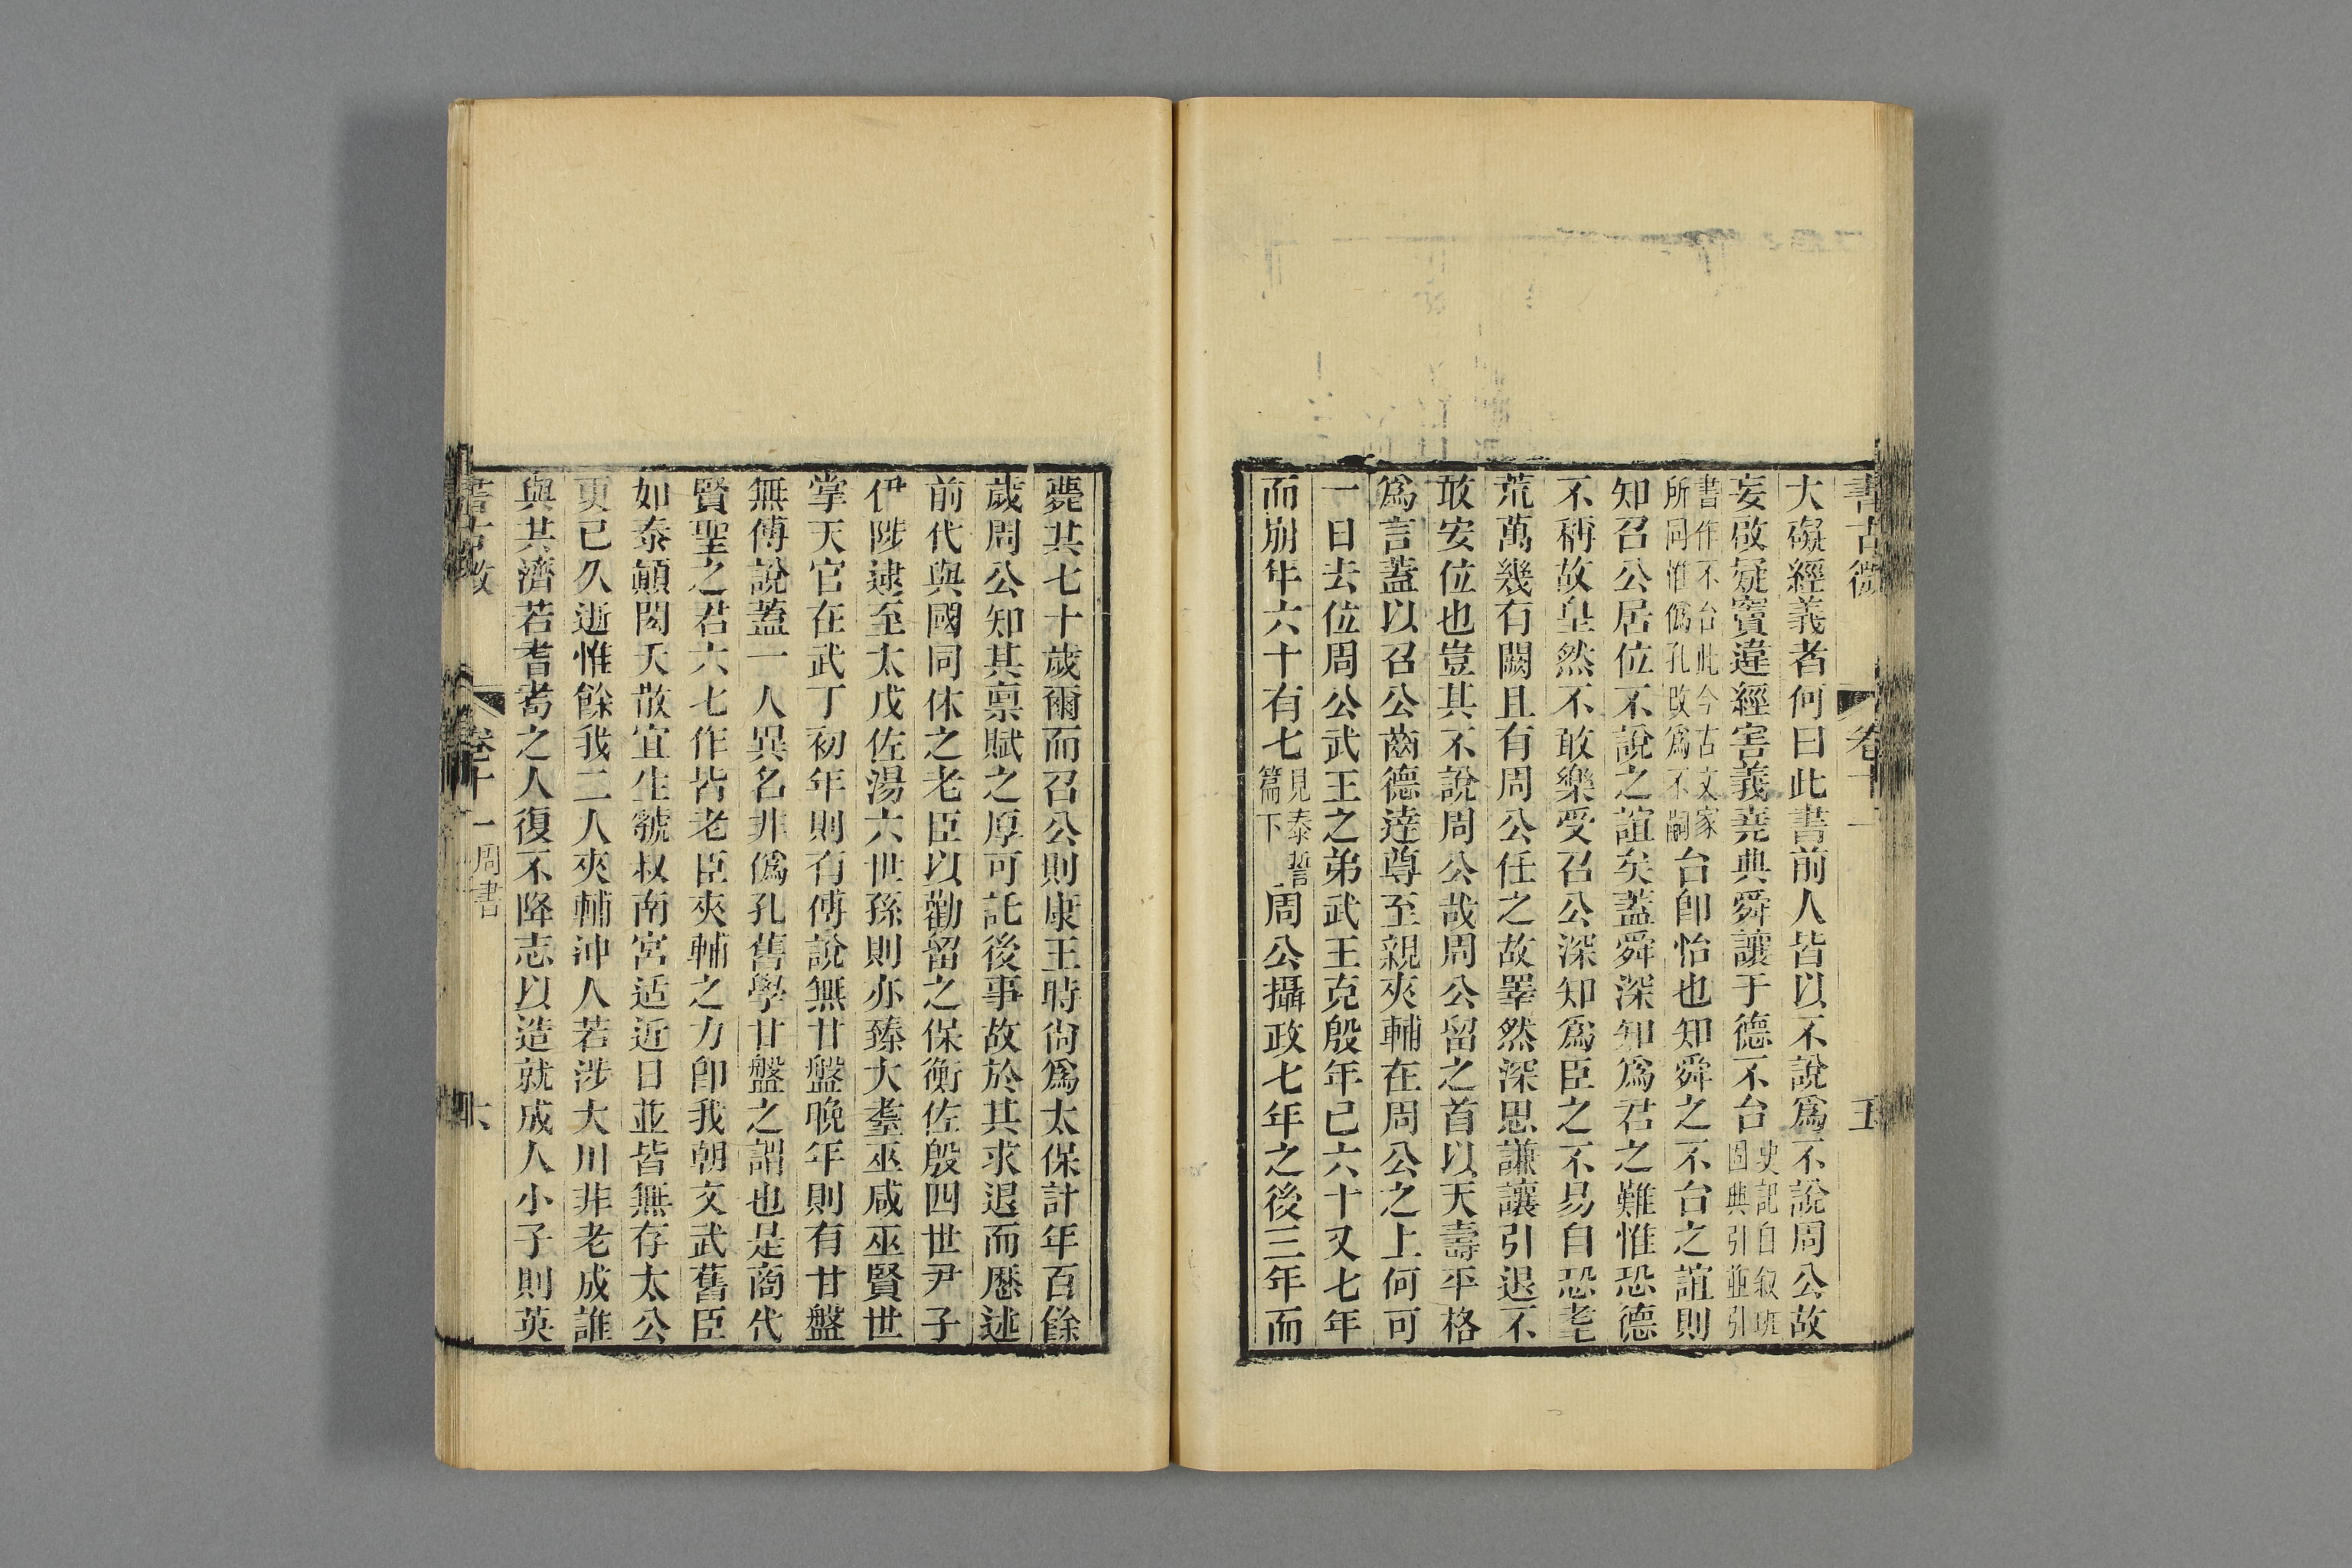 書古微
卷十一
五
大礙經義者何曰此書前人皆以不說爲不說周公故
妄啟疑竇違經害義堯典舜讓于德不台史記自叙班固典引並引
書作不台此今古文家所同惟僞孔改爲不嗣台卽怡也知舜之不台之誼則
知召公居位不說之誼矣蓋舜深知爲君之難惟恐德
不稱故皇然不敢樂受召公深知爲臣之不易自恐耄
荒萬幾有闕且有周公任之故睪然深思謙讓引退不
敢安位也豈其不說周公哉周公留之首以天壽平格
爲言蓋以召公齒德達尊至親夾輔在周公之上何可
一日去位周公武王之弟武王克殷年已六十又七年
而崩年六十有七見泰誓篇下周公攝政七年之後三年而
薨其七十歲爾而召公則康王時尙爲太保計年百餘
歲周公知其稟賦之厚可託後事故於其求退而歷述
前代與國同休之老臣以勸留之保衡佐殷四世尹子
伊陟逮至太戊佐湯六世孫則亦臻大耋巫咸巫賢世
掌天官在武丁初年則有傅說無甘盤晚年則有甘盤
無傅說蓋一人異名非僞孔舊學甘盤之謂也是商代
賢聖之君六七作皆老臣夾輔之力卽我朝文武舊臣
如泰顚閎夭散宜生虢叔南宮适近日並皆無存太公
更已久逝惟餘我二人夾輔沖人若涉大川非老成誰
與其濟若耆耇之人復不降志以造就成人小子則英
書古微
卷十一 周書
六